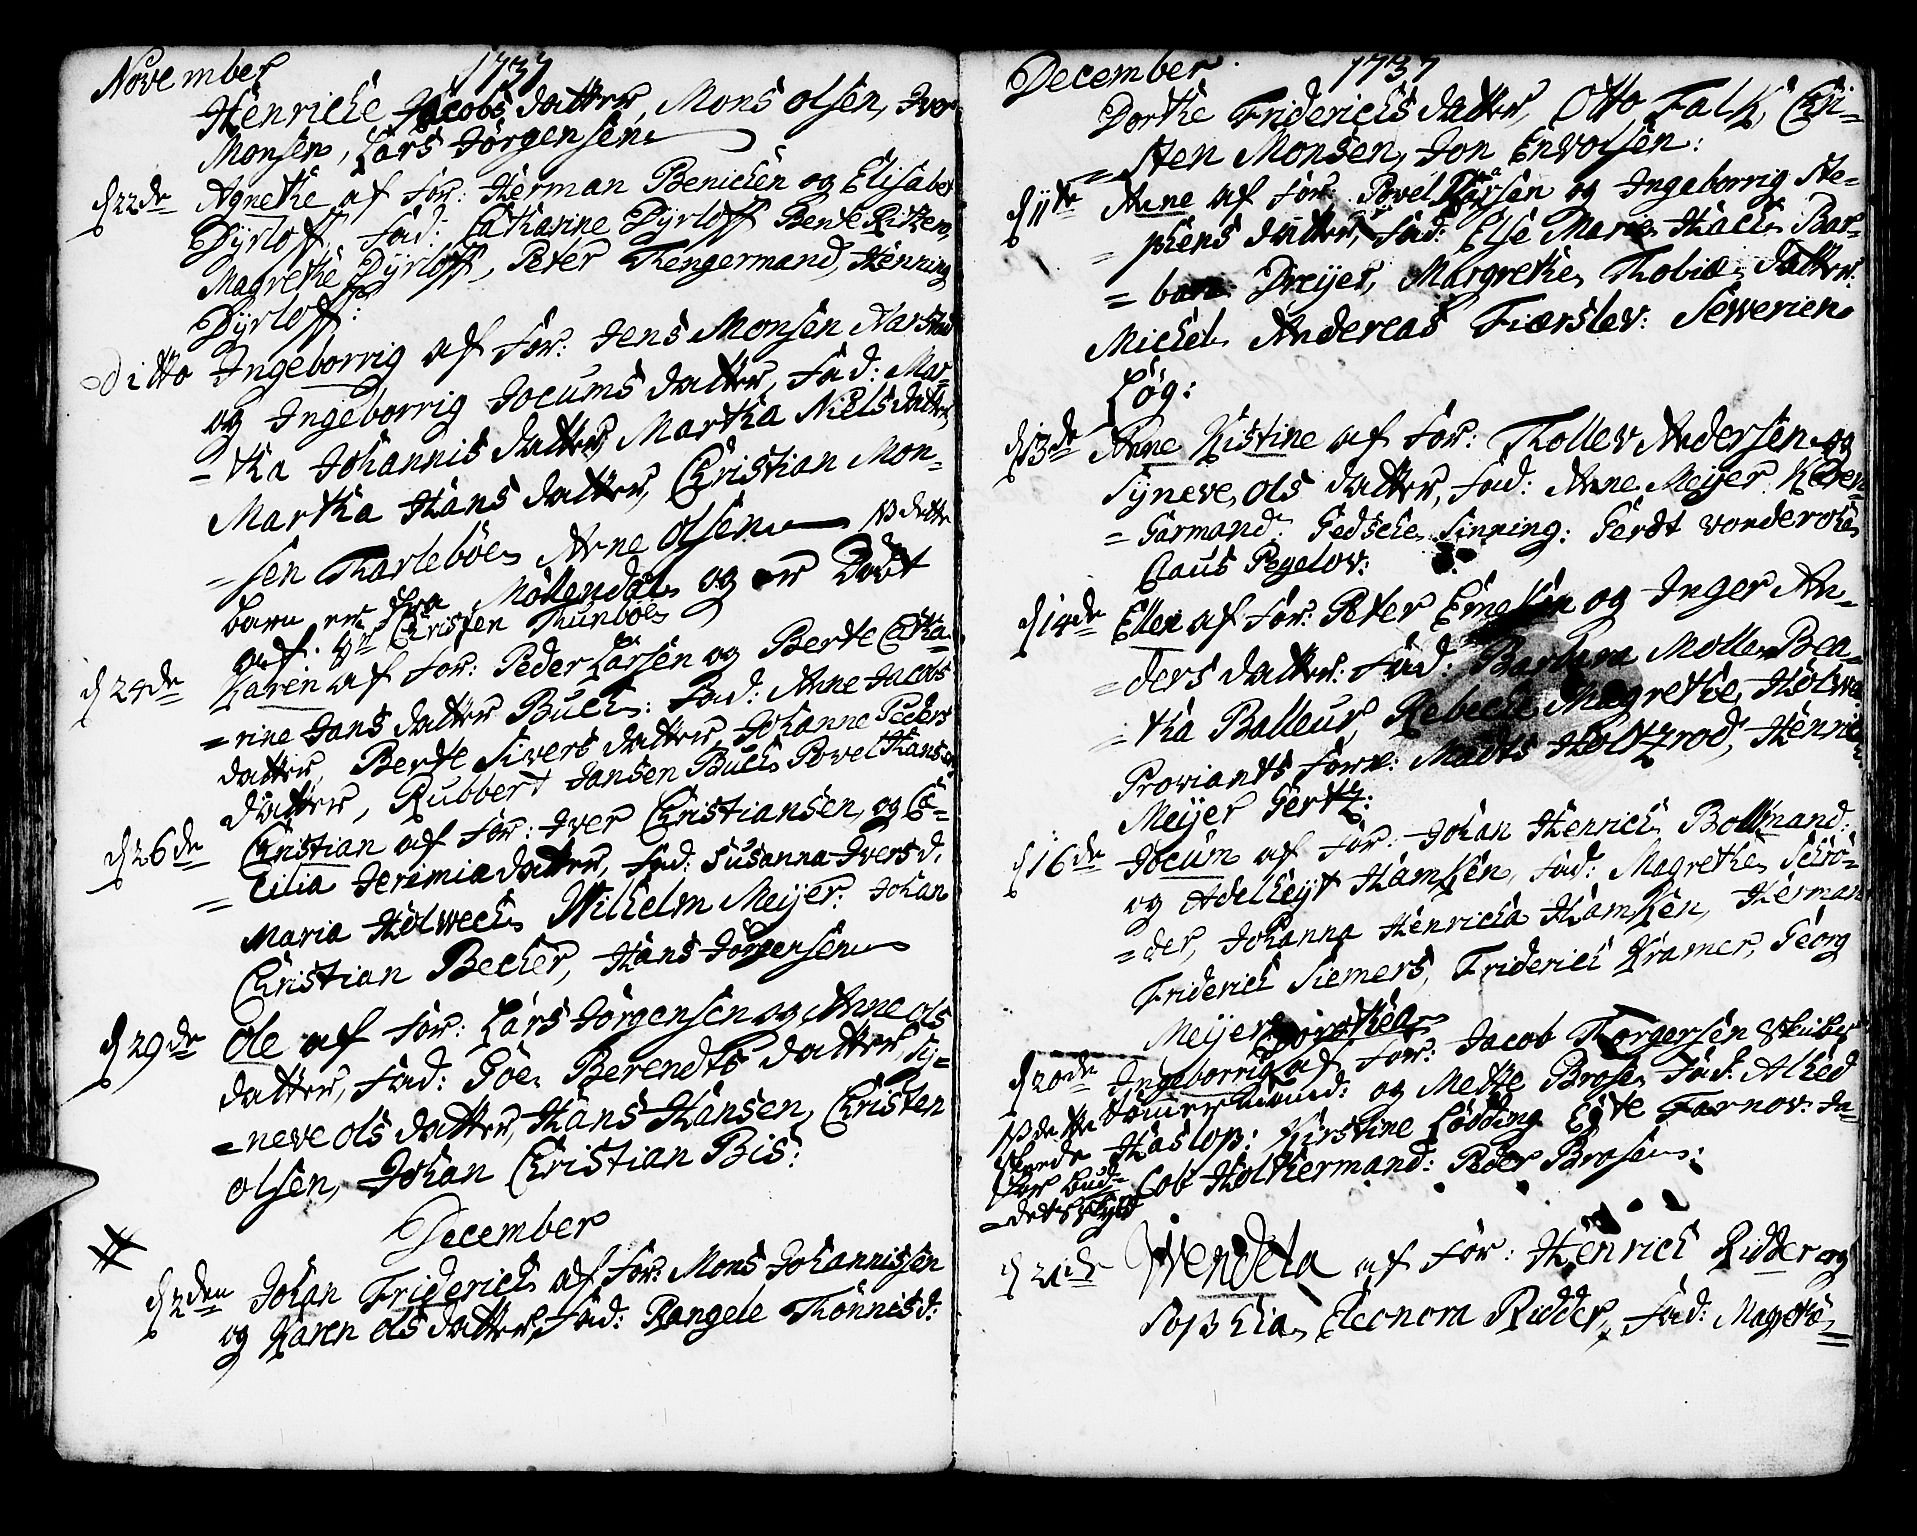 November 1737
Henriche Jacobs datter, Mons olsen, Iver
Monsen, Lars Jørgensen
d 22de Agnethe af for: Herman Benichen og Elisabet
Dyrloff, fad: Catharine Dyrloff Bente Ritken,
Magrethe Dyrloff, Peter Kengermand, Henning
Dyrloff:
ditto Ingeborrig af for: Jens Monsen Narstad
og Ingeborrig Jocums datter, fad: Mar-
=tha Johannis datter, Martha Niels datter,
Martha Hans datter, Christian Mon-
=sen Tharleböe, Arne olsen NB dette
barn er fra Möllendal og er Döbt
af: Hr Christen Thunboe
d 24de Karen af for: Peder Larsen og Berte Catha
=rine Jans datter Buch: fad: Anne Jacobs
datter, Berte Sivers datter, Johanne Peders
datter, Rubbert Jansen Buch, Povel Hansen
d 26de Christian af for: Iver Christiansen, og Ce-
=cilia Jerimia datter, fad: Susanna Ivers d.
Maria Holwech, Wilhelm Meyer: Johan
Christian Becher, Hans Jørgensen
d 29de Ole af for: Lars Jørgensen og Anne ols
datter, fad: Goe Berendts datter, Sy-
=neve ols datter, Hans Hansen, Christen
olsen, Johan Christian Bis:
December
d 2den Johan Friderich af for: Mons Johannissen
og Karen ols datter, fad: Rangele Thönnis d:
December 1737
Dorthe Friderichs datter, Otto Falk, Chri-
=sten Monsen, Jon Envolsen:
d 11te Anne af for: Povel Larsen og Ingeborrig Ste-
=phens datter, fad: Else Marie Hach Bar-
=bara Dreyer, Margrethe Thobiæ datter:
Michel Andereas Fiærslev: Sewerien
Løg:
d 13de Anne Kistine af for: Thollev Andersen og
Syneve ols datter, fad: Anne Meyer Karen
=Garmand: Gedsche Sinning: Gerdt vonderohe
Claus Pegelov:
d 14de Ellen af for: Peter og Inger An-
=ders datter: fad: Barbara Moller Bea-
=tha Balleur, Rebeche Magrethe Holwe
Proviants forv: Madts Holtzrod, Henrich
Meyer Gertz:
d 16de Jocum af for: Johan Henrich Bollmand:
og Adelheyt Hamken, fad: Magrethe Schrö-
=der, Johanna Henricha Hamken, Herman
Friderich Siemers, Friderich Kramer, Georg
Meyer
d 20de Ingeborrig af for: Jacob Thorgersen Skibs
tömermand: og Mette Brose, fad: Alhed
NB dette Haslop: Kirstine Lodding Eyte Farnov: Ja-
skeede =cob Holthermand: Peder Brose:
for bud-
=dets skyld
d 21de Wendela af for: Henrich Ridder og
Sophia Eleonora Ridder, fad: Magreta